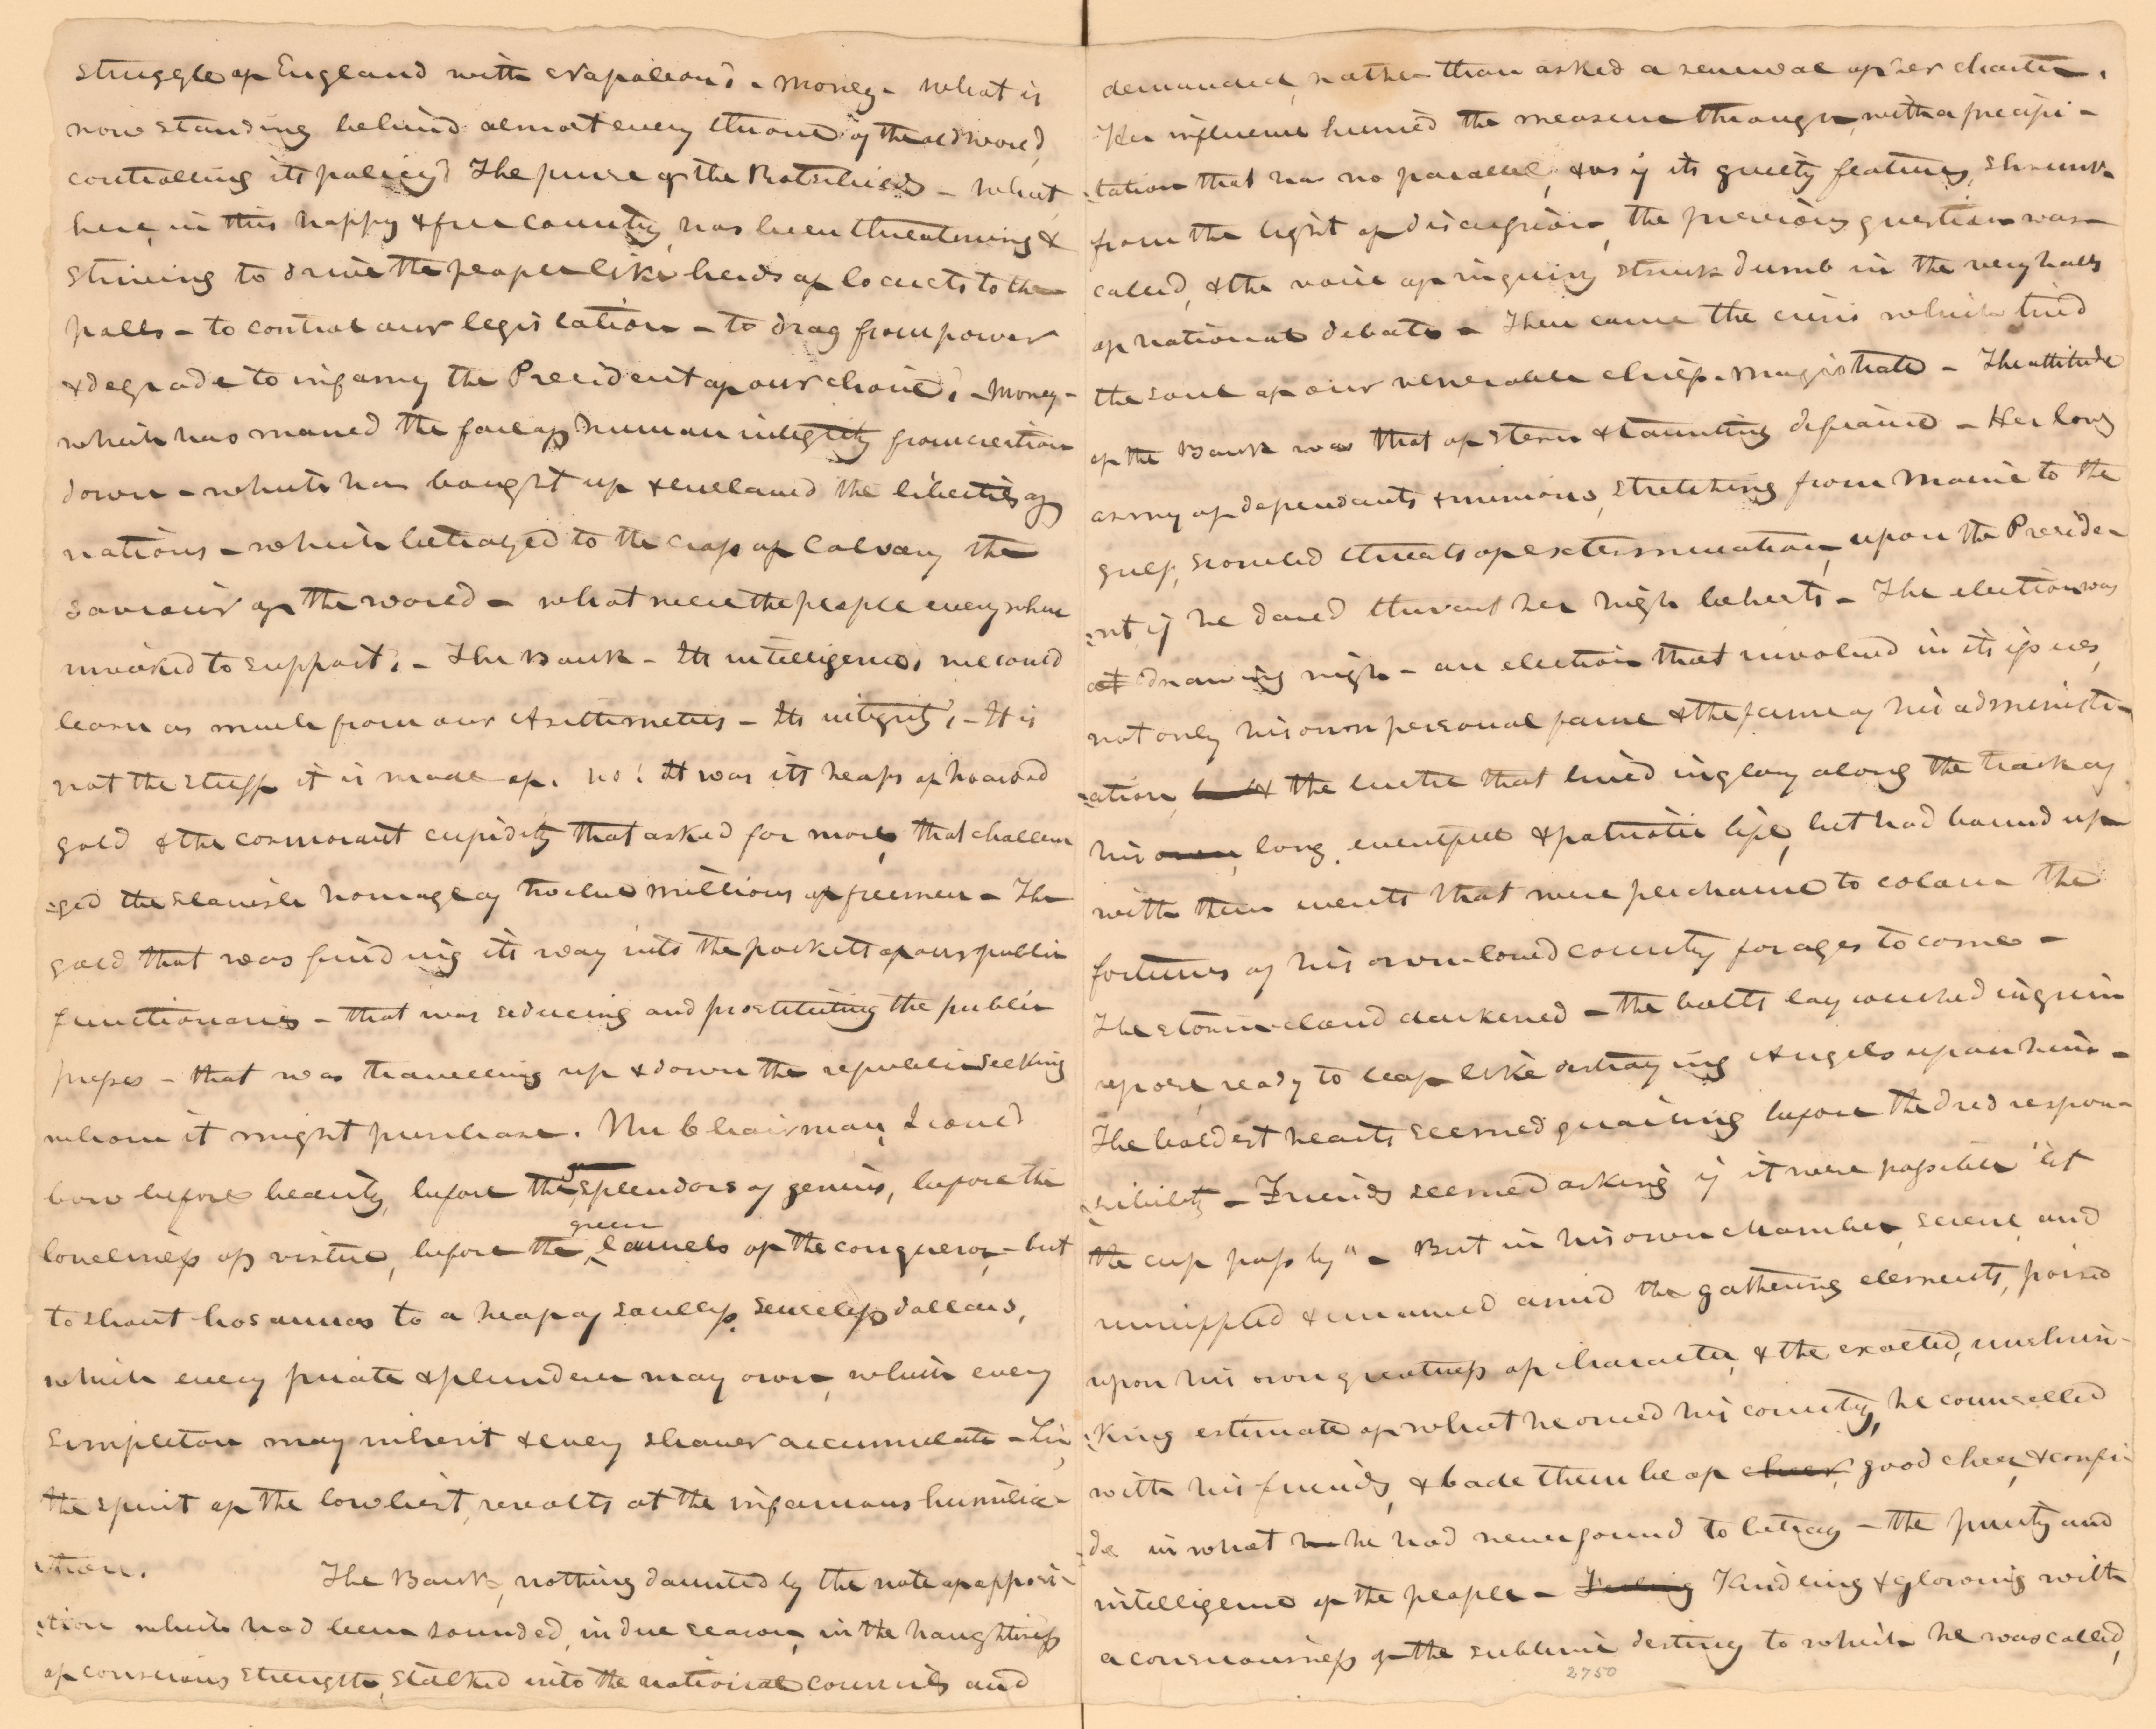 struggle of England with Napoleon? - Money - What is
now standing behind almost every throne of the old world,
controlling its policy? The purse of the Rotschilds - What
here, in this happy & free country, has been threatening &
striving to drive the people like herds of locusts to the
polls - to control our legislation - to drag from power
& degrade to infamy the President of our choice? - Money -
which has marred the face of human integrity from creation
down - which has bought up & enslaved the liberties of
nations - which betrayed to the cross of Calvary the
Saviour of the world - what were the people every where
invoked to support? - The Bank - Its intelligence? we could
learn as much from our Arithmetics - Its integrity? - It is
not the stuff it is made of. No! It was its heaps of hoarded
gold & the cormorant cupidity that asked for more, that challen
-ged the slavish homage of twelve millions of freemen - The
gold that was finding its way into the pockets of our public
functionaries - that was seducing and prostituting the public
press - that was travelling up & down the republic seeking
whom it might purchase. Mr Chairman, I could
bow before beauty, before the splendors of genius, before the
loveliness of virtue, before the green laurels of the conqueror, - but
to shout hosannas to a heap of soulless, senseless dollars,
which every pirate & plunderer may own, which every
simpleton may inherit & every shaver accumulate - Sir,
the spirit of the lowliest, revolts at the infamous humilia-
-tion. The Bank, nothing daunted by the note of opposi-
-tion which had been sounded, in due season, in the haughtiness
of conscious strength, stalked into the national councils and
demanded, rather than asked a renewal of her charter.
Her influence hurried the measure through, with a precipi-
-tation that has no parallel; & as if its guilty features, shrunk
from the light of discussion, the previous question was
called, & the voice of inquiry struck dumb in the very halls
of national debate - Then came the crisis which tried
the soul of our venerable chief-magistrate - The attitude
of the Bank was that of stern & taunting defiance - Her long
army of dependants & minions, stretching from Maine to the
gulf, scowled threats of extermination, upon the Preside-
-nt if he dared thwart her high behests - The election was
at drawing nigh - an election that involved in its issues,
not only his own personal fame & the fame of his administr-
-ation, & the lustre that lived in glory along the track of
his own, long, eventful & patriotic life, but had bound up
with them events that were perchance to colour the
fortunes of his own-loved country for ages to come -
The storm-cloud darkened - the bolts lay couched in grim
repose, ready to leap like destroying Angels upon him -
The boldest hearts seemed quailing before the dred respon-
-sibility - Friends seemed asking if it were possible "let
the cup pass by" - But in his own chamber, serene and
unruffled & unawed amid the gathering elements, poised
upon his own greatness of character, & the exalted, unshrin-
-king estimate of what he owed his country, he counselled
with his friends, & bade them be of cheer, good cheer, & confi-
-de in what he had never found to betray - the purity and
intelligence of the people - Feeling Kindling & glowing with
a consciousness of the sublime destiny to which he was called,
2750